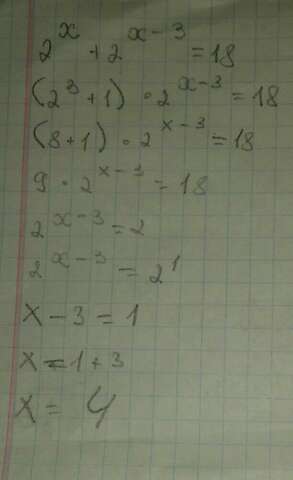 2^x + 2^{x-3} = 18
(2^3 + 1) · 2^{x-3} = 18
(8 + 1) · 2^{x-3} = 18
9 · 2^{x-3} = 18
2^{x-3} = 2
2^{x-3} = 2^1
x - 3 = 1
x = 1 + 3
x = 4